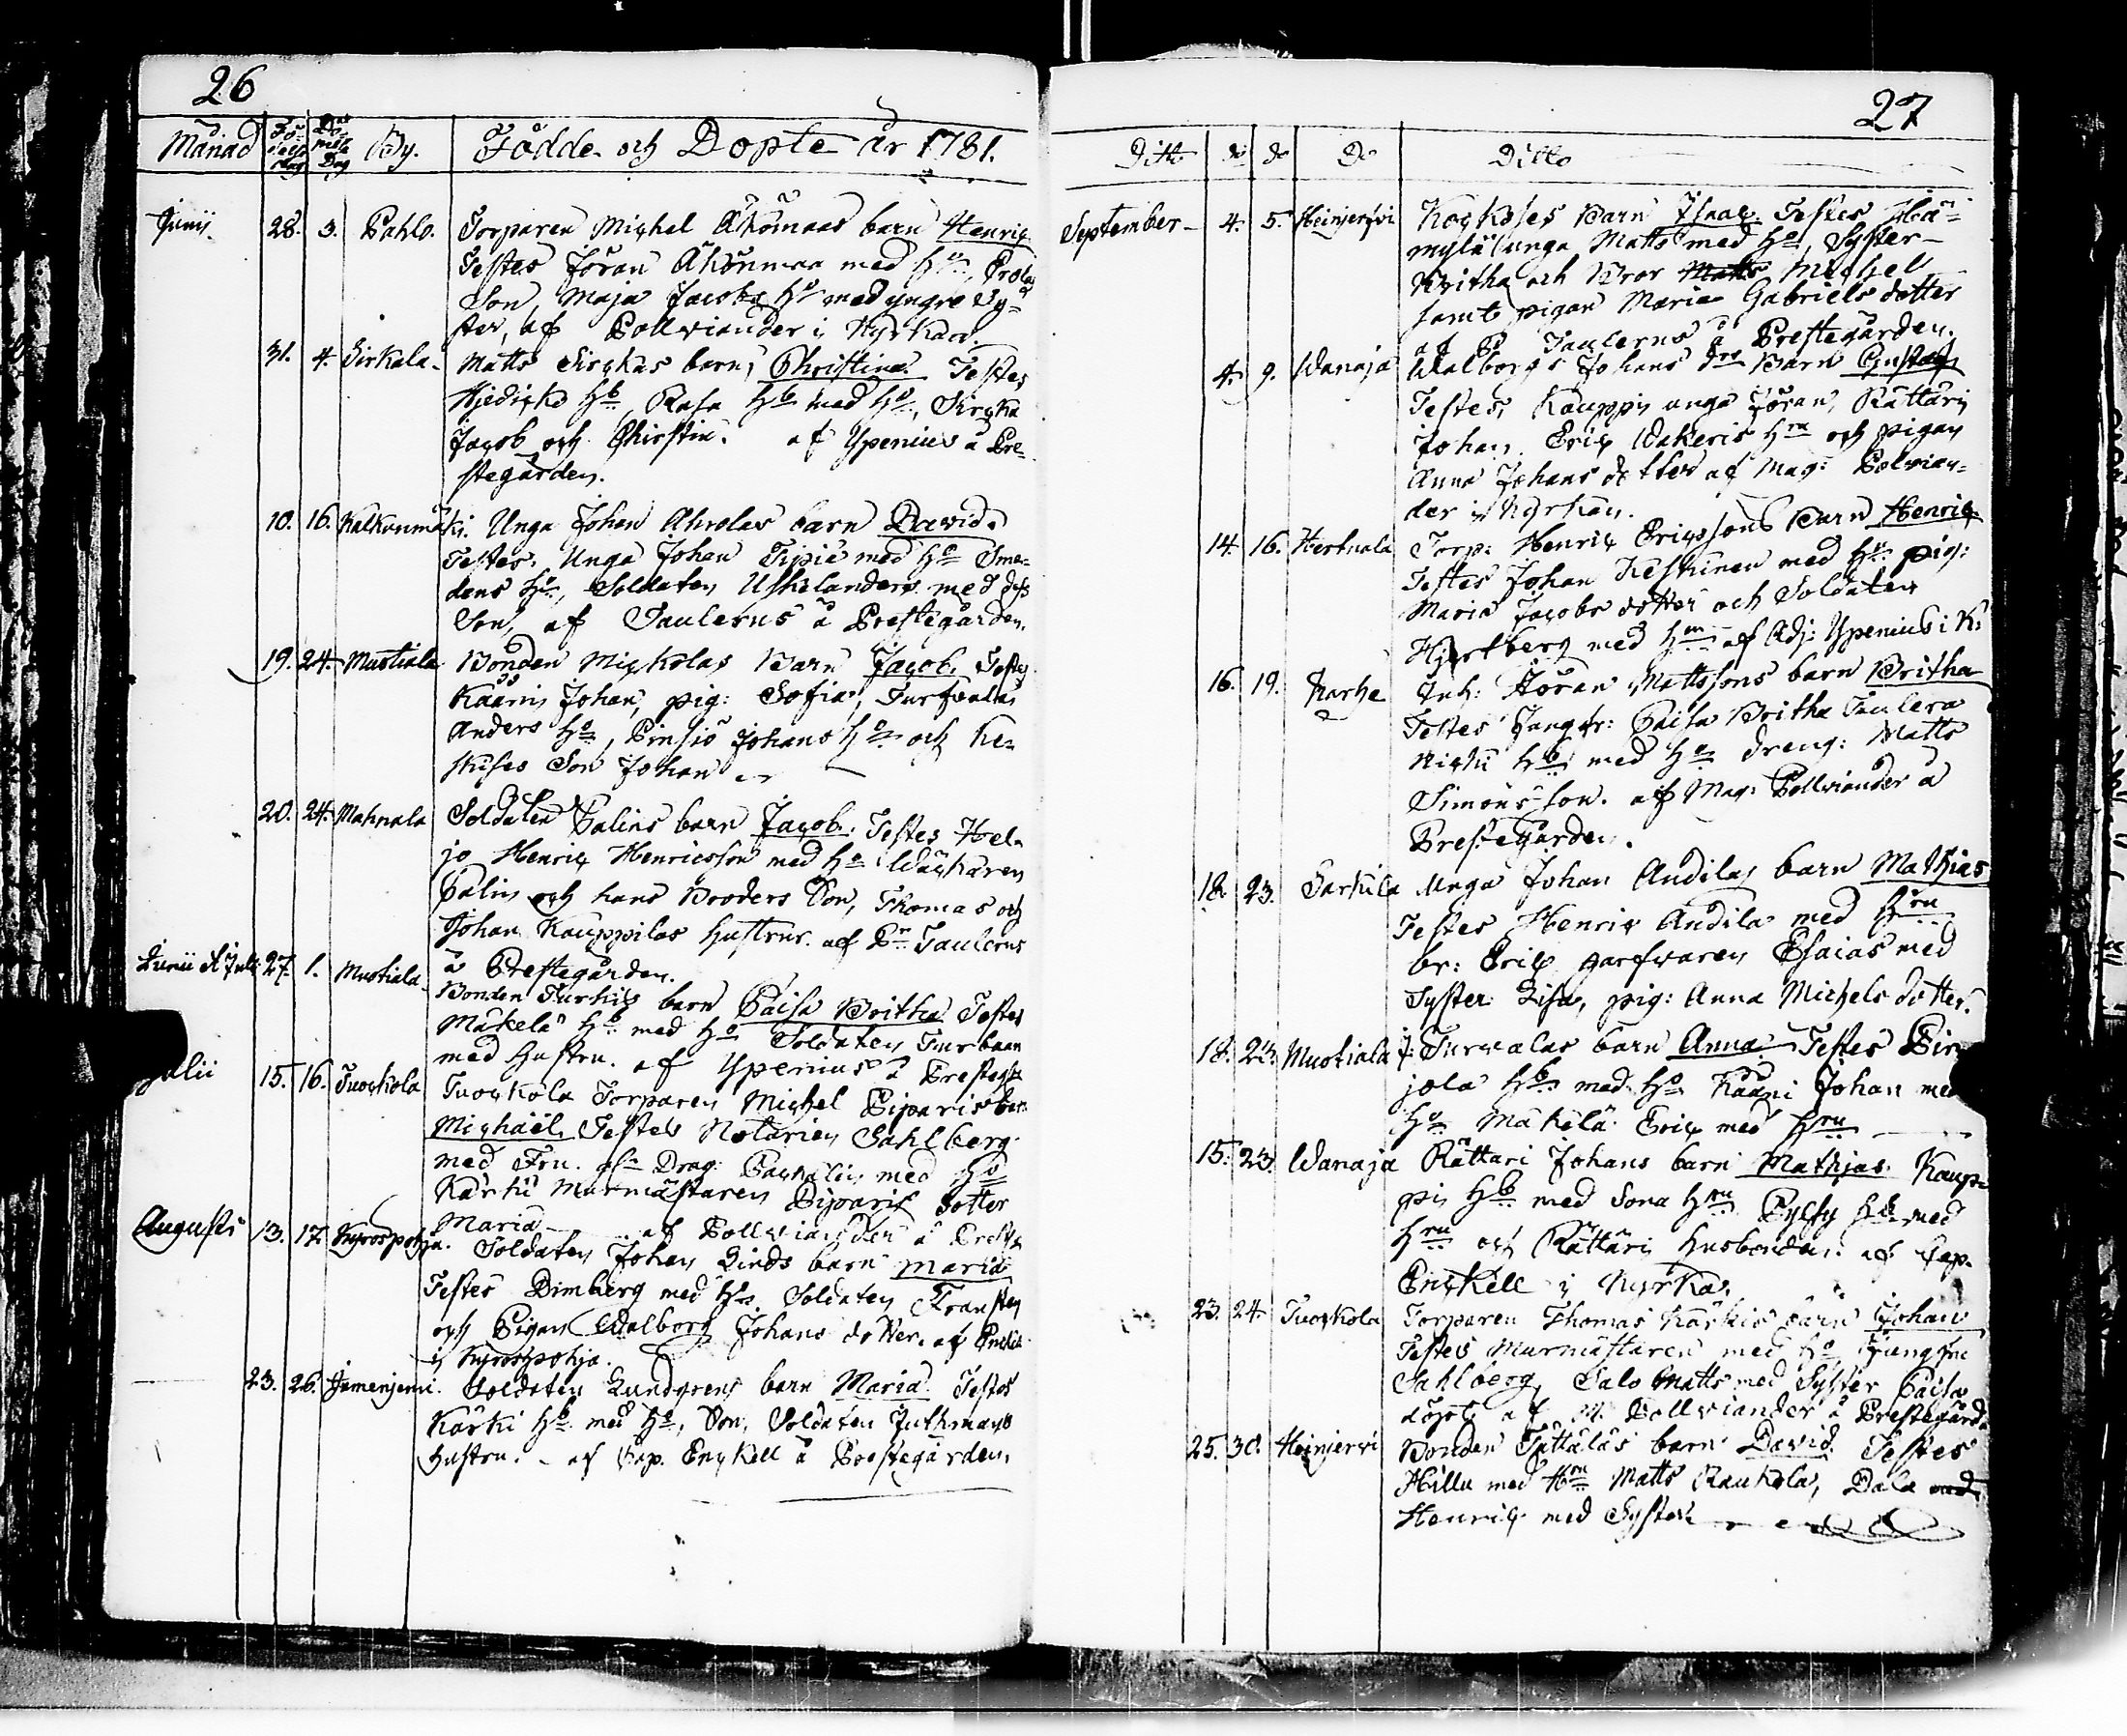 26
Månad Födelse dag Döpelse Dag By. Födde och Döpte år 1781.
Junii 28. 3. Pahlo. Torparen Michel Ahönmaas barn Henric
Testes Jöran Ahönmaa med Hu,
Son, Maja Jacobs Hu med yngre Sy=
ster, af Pollviander i Kyrkan.
31. 4. Sirkala. Matts Sirckas barn, Christina Testes
Hb Rasa Hb med Hu, Sircka
Jacob och Christin. af Ypenius å Pre=
stegården.
10. 16. Kalkunmäki. Unga Johan Ahrolas barn David.
Testes. Unga Johan Tipiä med Hu Sme=
dens Hu, Soldaten Uskelanders med dess
Son, af Taulerus å Prestegården.
19. 24. Mustiala Bonden Michkolas Barn Jacob, Testes
Kaaris Johan, pig: Sofia, Turfvalas
Anders Hu, Pinsiö Johans Hu och Ke=
skises Son Johan
20. 24. Mahnala Soldaten Palins barn Jacob. Testes Hei=
jo Henric Henricsson med Hu Wäckaren
Palin och hans Broders Son, Thomas och
Johan Kauppilas Hustrur. af Pr Taulerus
å Prestegården.
Junii et Julii 27. 1. Mustiala. Bonden Turkis barn Caisa Britha Testes
Mäkelä Hb med Hu Soldaten Turbaan
med Hustru. af Ypenius å Prestegn
Julii 15. 16. Tuockola Tuockola Torparen Michel Piparis barn
Michaël, Testes Notarien Sahlberg
med Fru. Drag: Pachalin med Hu
Kärki Murmästaren Piparis dotter
Maria af Pollviander å Prestg
Augusti 13. 17. Kyrospohja. Soldaten Johan Linds barn Maria
Testes Dimberg med Hu Soldaten Fransten
och Pigan Walborg Johans dotter. af
i Kyrospohja.
23. 26. Jumenjemi. Soldaten Lundgrens barn Maria. Testes
Kärki Hb med Hu, Son, Soldaten Juthmans
Hustru. af Cap. Enckell å Prestegården.
27
Ditto do do Do Ditto
September 4. 5. Heinjerfvi Kockoses Barn Isaac. Testes Hä=
mylä unga Matts med Hu, Syster
Britha och Bror Matts Michel
samt pigan Maria Gabriels dotter
af P Taulerus å Prestegården.
4. 9. Wanaja Walborgs Johans drs Barn Gustaf
Testes, Kauppis unga Jöran, Rättäris
Johan, Eric Wakeris Hru och pigan
Anna Johans dotter af Mag: Polvian=
der i Kyrkan.
14. 16. Hertuala Torp: Henric Ericssons Barn Henric
Testes Johan Keskinen med Hu pig:
Maria Jacobs dotter och Soldaten
Hjertberg med Hru af Adj: Ypenius i K:
16. 19. Karhe Inh: Jöran Mattssons barn Britha
Testes Jungfr: Caisa Britha Taulera
Hb med Hu dreng: Matts
Simons son. af Mag: Pollviander å
Prestegården.
18. 23. Sarkila Unga Johan Andilas barn Mathias
Testes Henric Andila med Hru
br: Eric garfvaren Esaias med
Syster Lisa, pig: Anna Michels dotter.
18. 23. Mustiala J: Turvalas barn Anna Testes Pin
jola Hb med Hu Kaari Johan med
Hu Mäkelä Eric med Hru
15. 23. Wanaja Rättäri Johans barn Mathias. Kaup=
pis Hb med Sona Hru Pyssy Hb med
Hru och Rättäri Husbonden. af Cap.
Enckell i Kyrka.
23. 24. Tuockola Torparen Thomas Kärkis barn Johan
Testes Murmästaren med Hu Jungfru
Sahlberg, Salo Matts med Syster Caisa
döpt af M. Pollviander å Prestegård.
25. 30. Heinjerwi Bonden Tattalas barn David Testes
Hillu med Hru Matts Raukola, Dala med
Henric med Syster